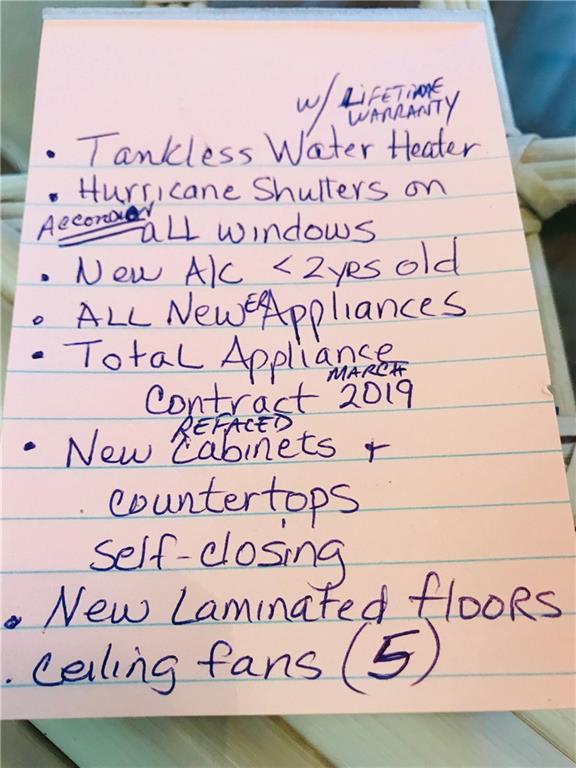 w/ LIFETIME
WARRANTY
• Tankless Water Heater
• Hurricane Shutters on
Accordion all windows
• New A/C < 2yrs old
• ALL NewER Appliances
• Total Appliance
MARCH
Contract 2019
REFACED
• New Cabinets +
countertops
self-closing
• New Laminated floors
• Ceiling fans (5)